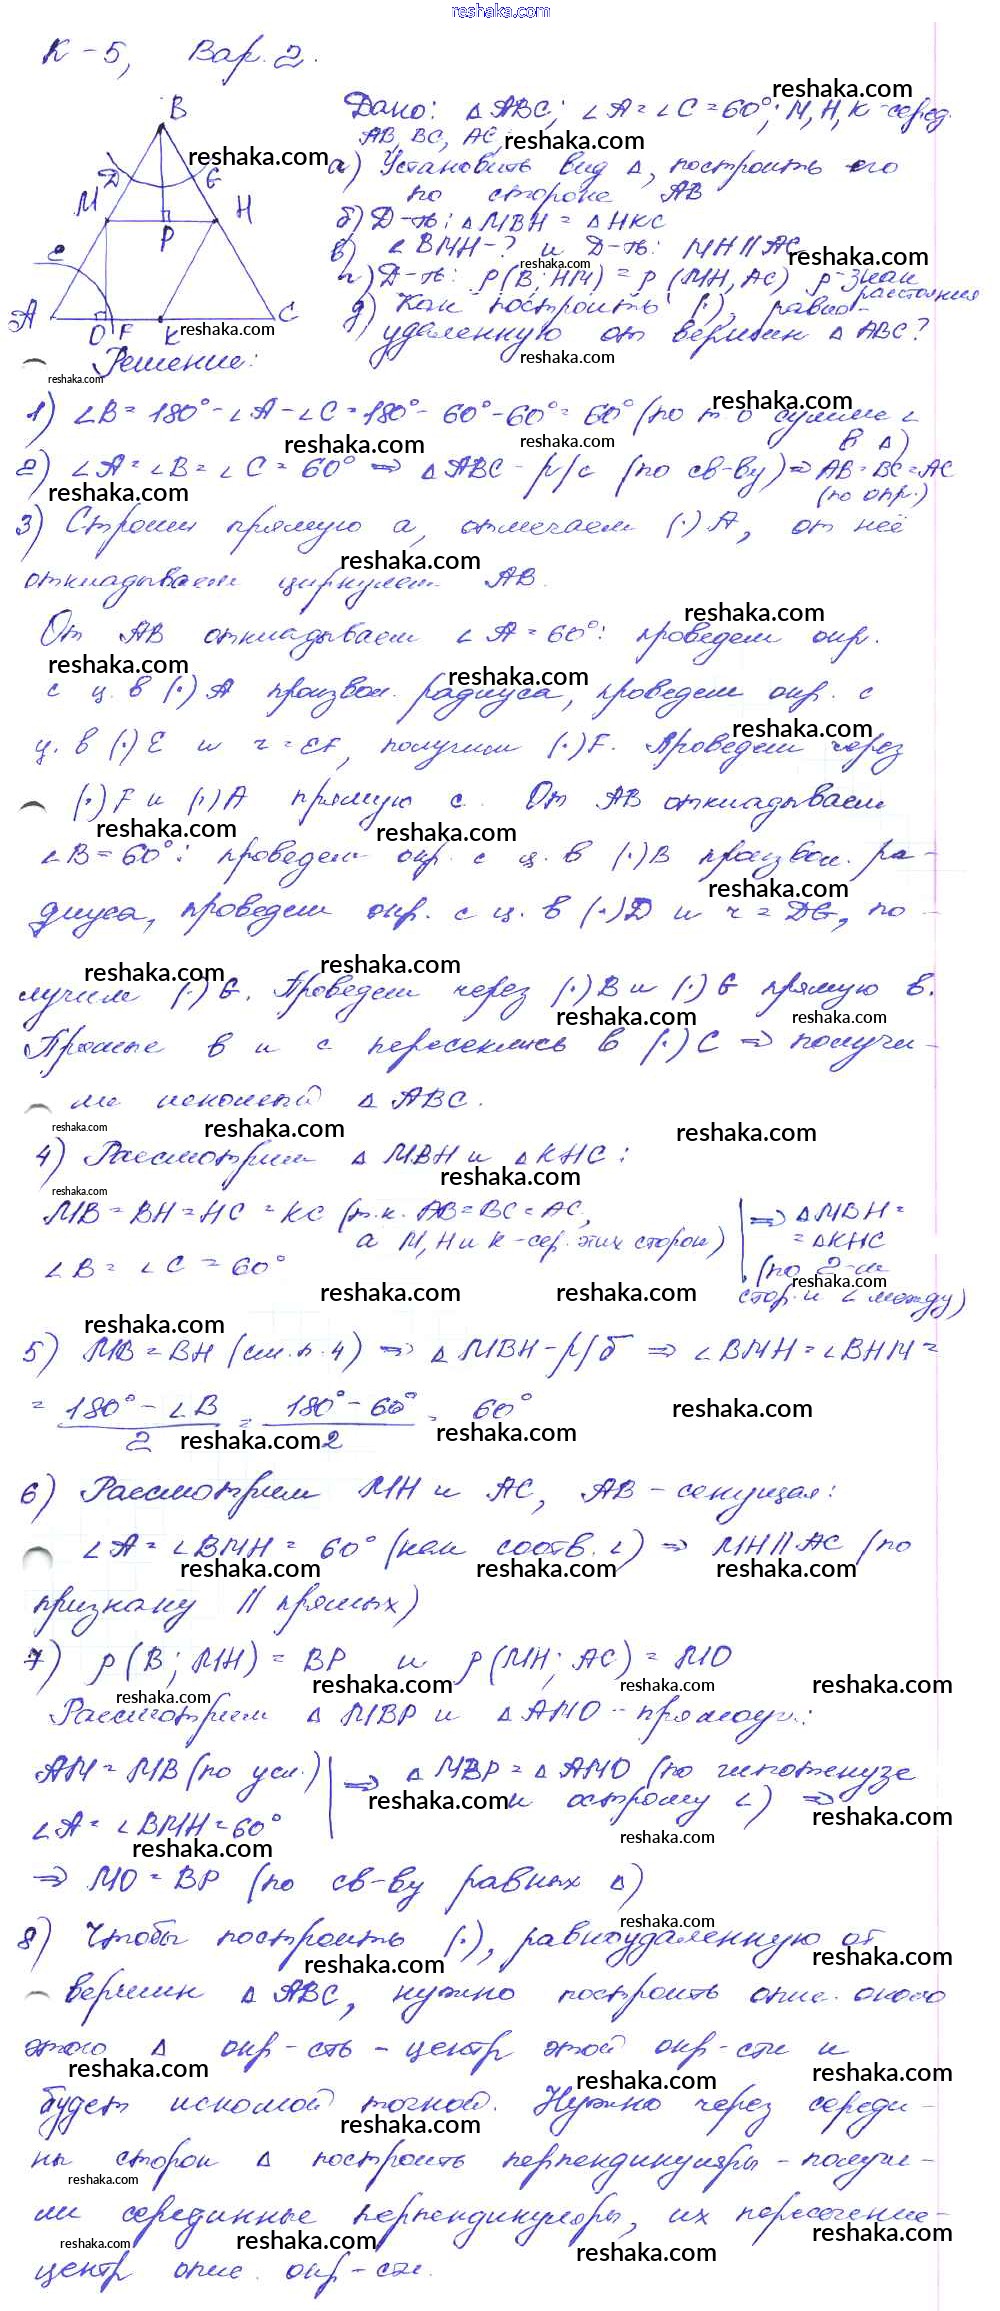 reshaka.com
К-5, Вар. 2.
Дано: △ABC; ∠A=∠C=60°; M, H, K-серед.
AB, BC, AC;
а) Установить вид △, построить его
по стороне AB
б) Д-ть: △MBH = △HKC
в) ∠BMH-? и Д-ть: MH||AC
г) Д-ть: ρ(B; HM) = ρ(MH, AC) ρ-знак
расстояния
д) Как построить (·), равно-
удаленную от вершин △ABC?
B
D G
M H
P
E
A O F K C
Решение:
1) ∠B = 180°-∠A-∠C=180°-60°-60°=60° (по т о сумме ∠
в △)
2) ∠A=∠B=∠C=60° ⇒ △ABC - р/с (по св-ву) ⇒ AB=BC=AC
(по опр.)
3) Строим прямую a, отмечаем (·)A, от неё
откладываем циркулем AB.
От AB откладываем ∠A=60°: проведем окр.
с ц. в (·)A произвол. радиуса, проведем окр. с
ц. в (·)E и r=EF, получим (·)F. Проведем через
(·)F и (·)A прямую c. От AB откладываем
∠B=60°: проведем окр. с ц. в (·)B произвол. ра-
диуса, проведем окр. с ц. в (·)D и r=DG, по-
лучим (·)G. Проведем через (·)B и (·)G прямую b.
Прямые b и c пересеклись в (·)C ⇒ получи-
ли искомый △ABC.
4) Рассмотрим △MBH и △KHC:
MB=BH=HC=KC (т.к. AB=BC=AC,
а M, H и K-сер. этих сторон)
∠B=∠C=60°
⇒ △MBH=
=△KHC
(по 2-м
стор. и ∠ между)
5) MB=BH (см. п. 4) ⇒ △MBH-р/б ⇒ ∠BMH=∠BHM=
= (180°-∠B)/2 = (180°-60°)/2 = 60°
6) Рассмотрим MH и AC, AB-секущая:
∠A=∠BMH=60° (как соотв. ∠) ⇒ MH||AC (по
признаку || прямых)
7) ρ(B; MH)=BP и ρ(MH; AC)=MO
Рассмотрим △MBP и △AMO-прямоуг.:
AM=MB (по усл.)
∠A=∠BMH=60°
⇒ △MBP=△AMO (по гипотенузе
и острому ∠) ⇒
⇒ MO=BP (по св-ву равных △)
8) Чтобы построить (·), равноудаленную от
вершин △ABC, нужно построить опис. около
этого △ окр-сть - центр этой окр-сти и
будет искомой точкой. Нужно через середи-
ны сторон △ построить перпендикуляры - получи-
ли серединные перпендикуляры, их пересечение-
центр опис. окр-сти.